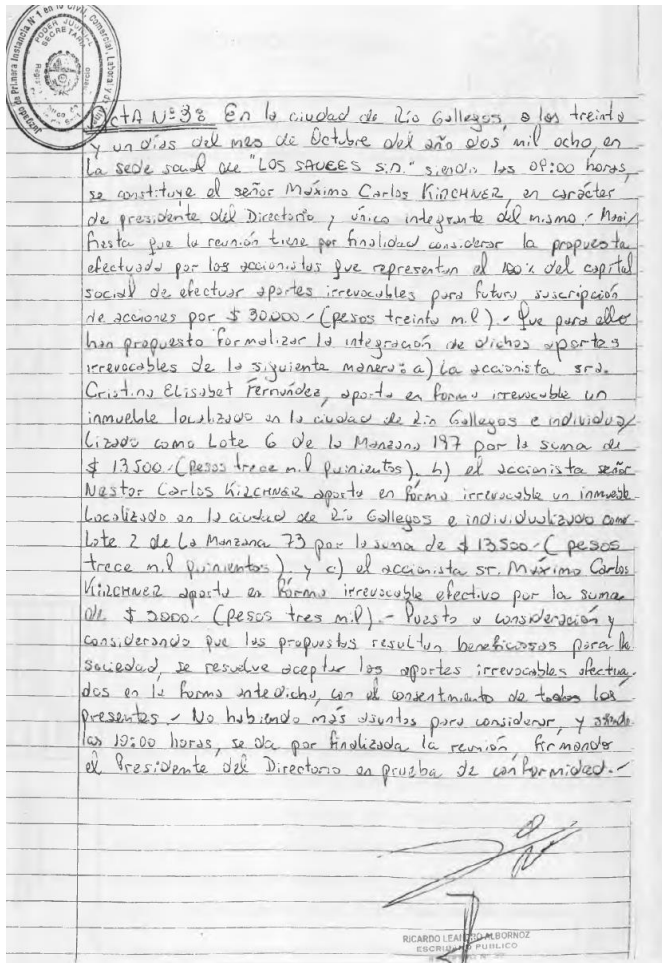 Juzgado de Primera Instancia Nº 1 en lo Civil, Comercial, Laboral y de
PODER JUDICIAL
SECRETARIA
ACTA Nº 38 En la ciudad de Río Gallegos, a los treinta
y un días del mes de Octubre del año dos mil ocho, en
la sede social de "LOS SAUCES S.A." siendo las 09:00 horas,
se constituye el señor Máximo Carlos KIRCHNER, en carácter
de presidente del Directorio y único integrante del mismo.- Mani/
fiesta que la reunión tiene por finalidad considerar la propuesta
efectuada por los accionistas que representan el 100% del capital
social de efectuar aportes irrevocables para futura suscripción
de acciones por $ 30.000.- (pesos treinta mil).- Que para ello
han propuesto formalizar la integración de dichos aportes
irrevocables de la siguiente manera: a) La accionista sra.
Cristina Elisabet Fernández, aporta en forma irrevocable un
inmueble localizado en la ciudad de Río Gallegos e individua/
lizado como Lote 6 de la Manzana 197 por la suma de
$ 13500.- (pesos trece mil quinientos), b) el accionista señor
Nestor Carlos KIRCHNER aporta en forma irrevocable un inmueble
localizado en la ciudad de Río Gallegos e individualizado como
Lote 2 de La Manzana 73 por la suma de $ 13500.- (pesos
trece mil quinientos), y c) el accionista sr. Máximo Carlos
KIRCHNER aporta en forma irrevocable efectivo por la suma
de $ 3000.- (pesos tres mil).- Puesto a consideración y
considerando que las propuestas resultan beneficiosas para la
sociedad, se resuelve aceptar los aportes irrevocables efectua-
dos en la forma antedicha, con el consentimiento de todos los
presentes.- No habiendo más asuntos para considerar, y siendo
las 10:00 horas, se da por finalizada la reunión, firmando
el Presidente del Directorio en prueba de conformidad.-
RICARDO LEANDRO ALBORNOZ
ESCRIBANO PUBLICO